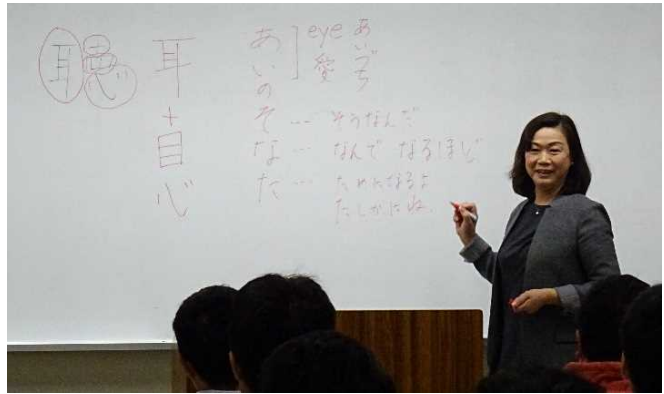 聴
耳+目心
あいのそなた
あいづち
eye
愛
そ…そうなんだ
な…なんで なるほど
た…ためになるよ
たしかにね